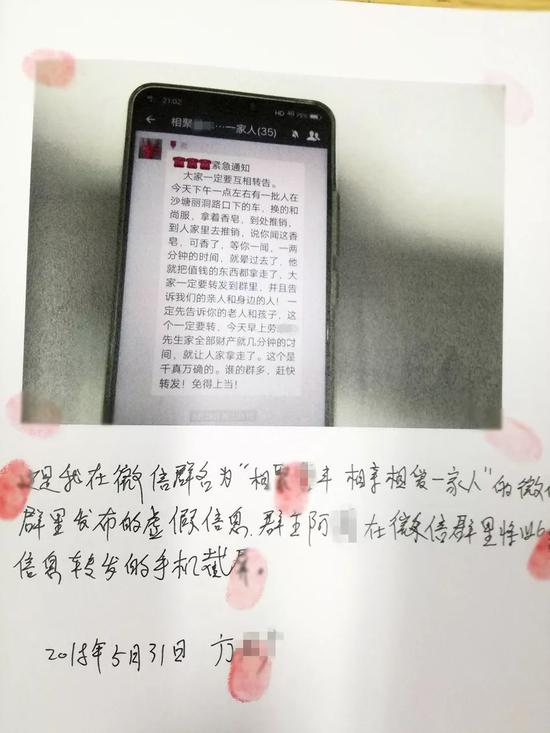 21:02
HD 4G 79%
相聚 ···一家人(35)
紧急通知
大家一定要互相转告。
今天下午一点左右有一批人在
沙塘丽洞路口下的车，换的和
尚服，拿着香皂，到处推销，
到人家里去推销，说你闻这香
皂，可香了，等你一闻，一两
分钟的时间，就晕过去了，他
就把值钱的东西都拿走了，大
家一定要转发到群里，并且告
诉我们的亲人和身边的人！一
定先告诉你的老人和孩子，这
个一定要转，今天早上劳
先生家全部财产就几分钟的时
间，就让人家拿走了。这个是
千真万确的。谁的群多，赶快
转发！免得上当！
是我在微信群名为“相聚 年 相亲相爱一家人”的微信
群里发布的虚假信息，群主阿 在微信群里将此
信息转发的手机截屏。
2018年5月31日 方